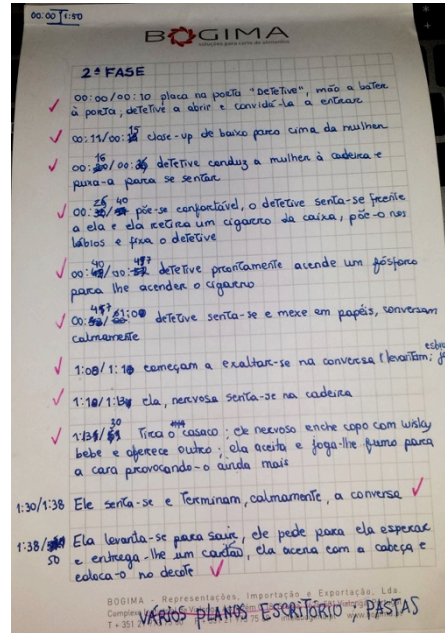 00:00 1:50
BOGIMA
soluções para corte de alimentos
2ª FASE
00:00/00:10 placa na porta "DeTeTive", mão a bater
à porta, deTeTive a abrir e convidá-la a entrar
00:11/00:15 close-up de baixo para cima da mulher
00:16/00: deTeTive conduz a mulher à cadeira e
puxa-a para se sentar
00:26/40 põe-se confortável, o deTeTive senta-se frente
a ela e ela reTira um cigarro da caixa, põe-o nos
lábios e fixa o deTeTive
00:40/00:47 deTeTive prontamente acende um fósforo
para lhe acender o cigarro
00:47/01:00 deTeTive senTa-se e mexe em papéis, conversam
calmamente
1:00/1:10 começam a exaltar-se na conversa (levantam;
1:10/1:13 ela, nervosa senTa-se na cadeira
1:13/30 Tira o casaco; ele nervoso enche copo com wisky
bebe e oferece outro; ela aceita e joga-lhe fumo para
a cara provocando-o ainda mais
1:30/1:38 Ele senTa-se e Terminam, calmamente, a conversa
1:38/50 Ela levanta-se para sair, ele pede para ela esperar
e entrega-lhe um cartão, ela acena com a cabeça e
coloca-o no decote
BOGIMA - Representações, Importação e Exportação, Lda.
VÁRIOS PLANOS ESCRITÓRIO; PASTAS